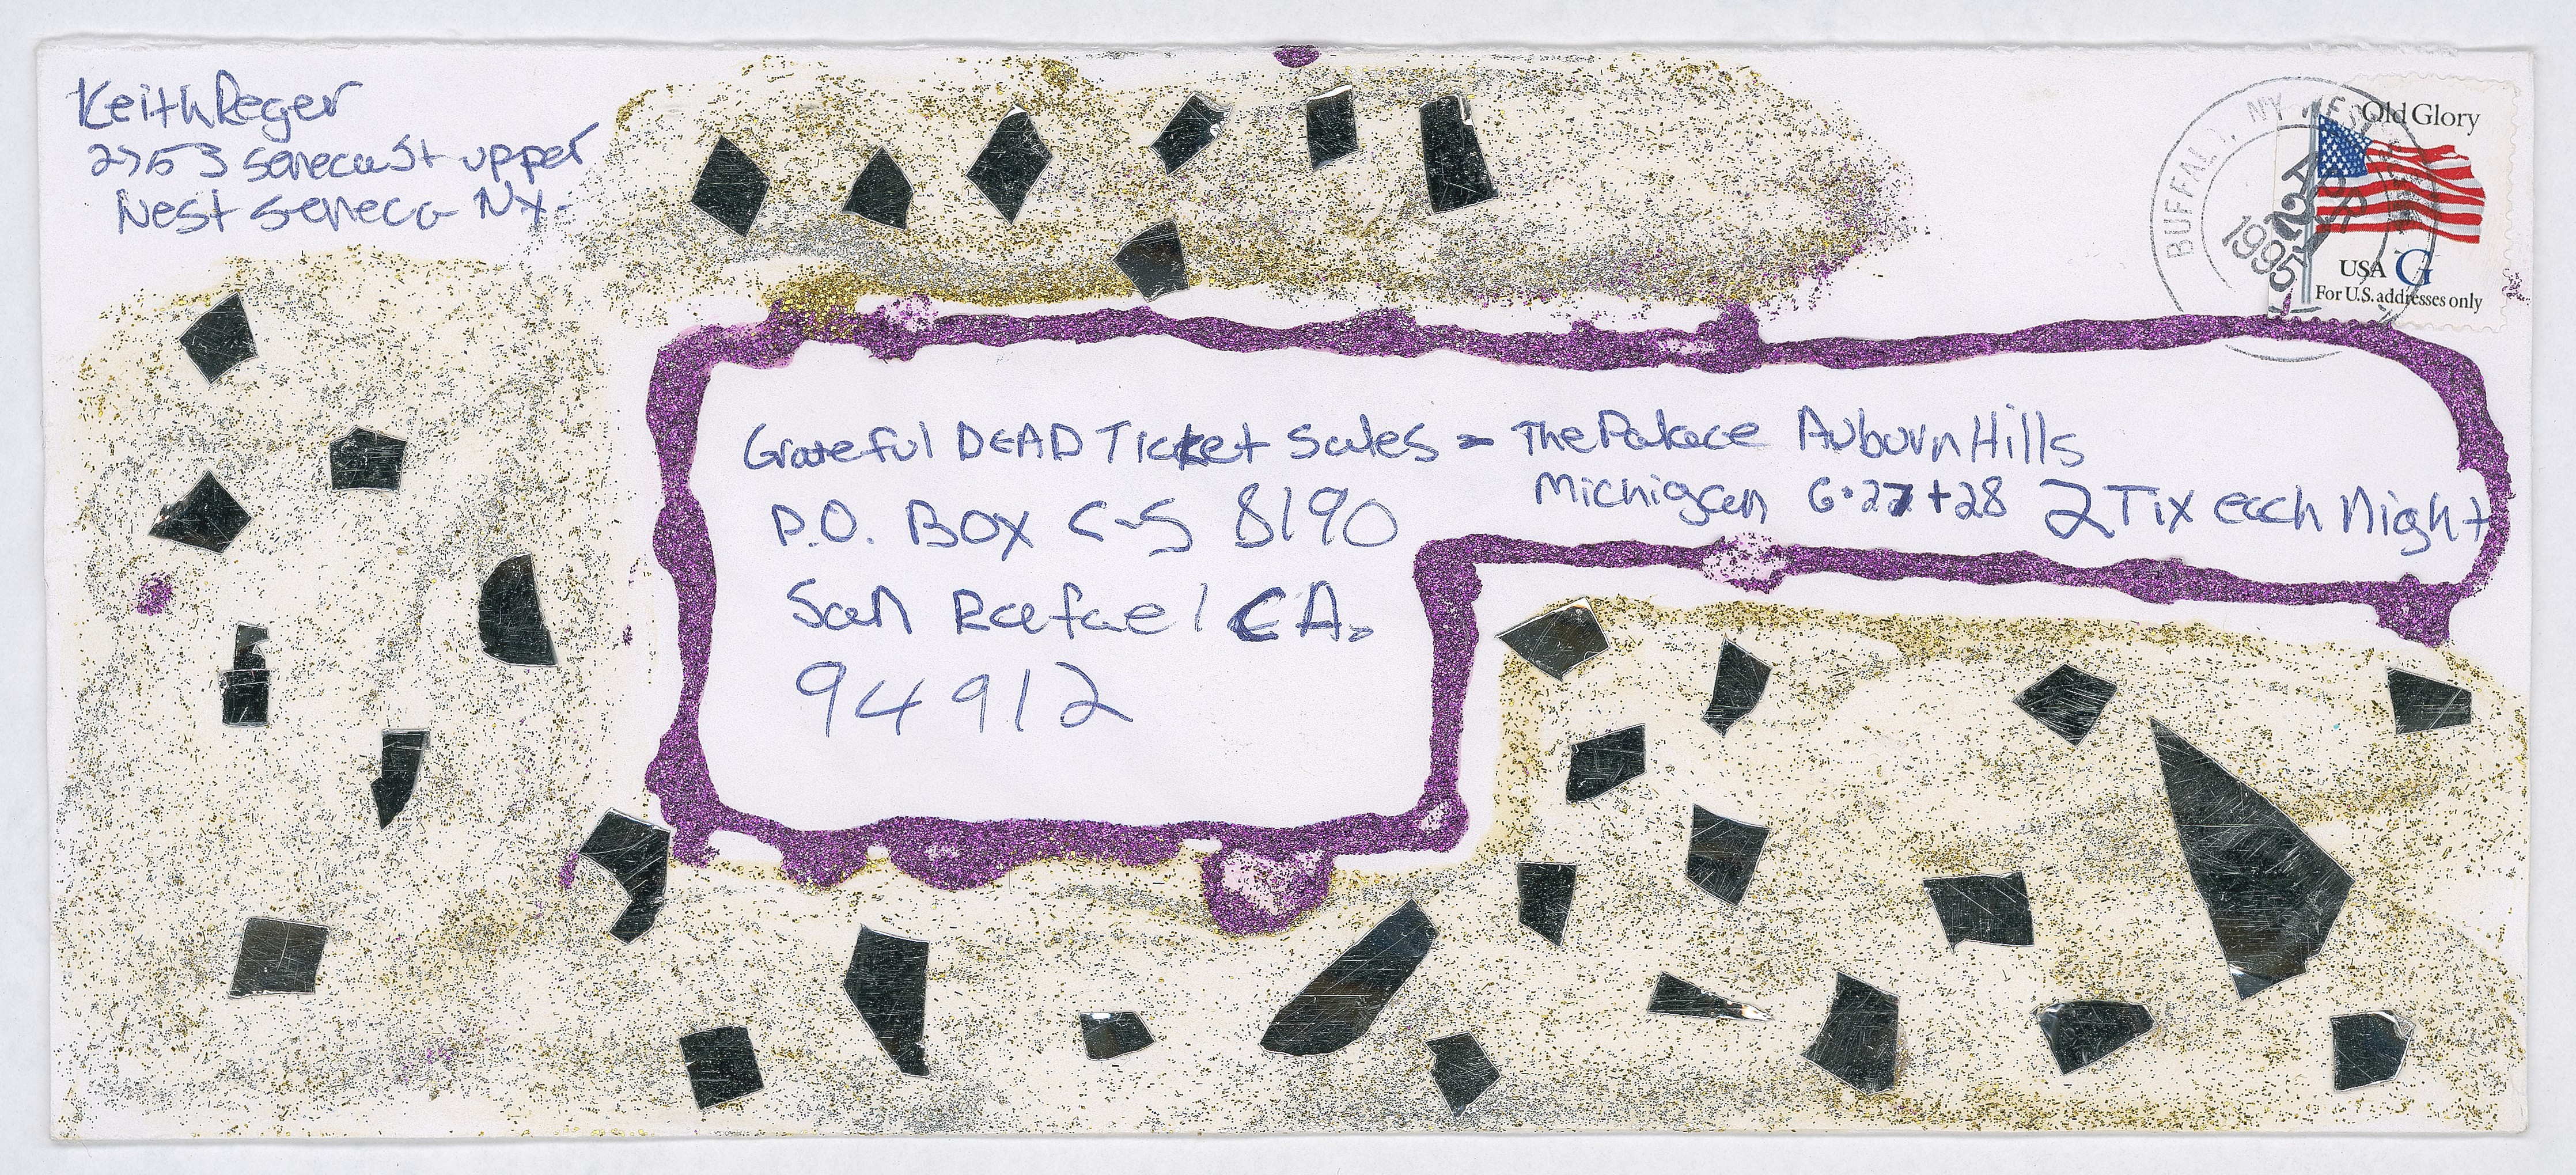 Keith Reger
2753 Seneca St upper
West Seneca NY.
BUFFALO, NY
APR
1995
Old Glory
USA G
For U.S. addresses only
Grateful DEAD Ticket Sales - The Palace Auburn Hills
Michigan 6.27+28 2 Tix each Night
P.O. BOX C-S 8190
San Rafael CA.
94912